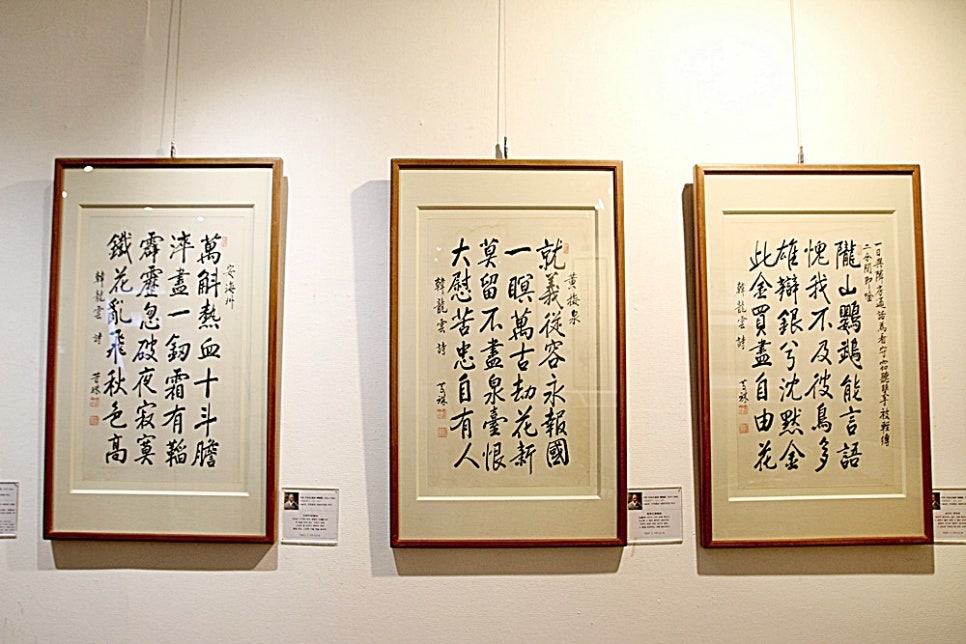 安海州
萬斛熱血十斗膽
淬盡一釰霜有鞱
霹靂忽破夜寂寞
鐵花亂飛秋色高
韓龍雲 詩
黃梅泉
就義從容永報國
一瞑萬古劫花新
莫留不盡泉臺恨
大慰苦忠自有人
韓龍雲 詩
一日與隣房通話為看守窃聽雙手被輕縛
二分間即唫
隴山鸚鵡能言語
愧我不及彼鳥多
雄辯銀兮沈默金
此金買盡自由花
韓龍雲 詩